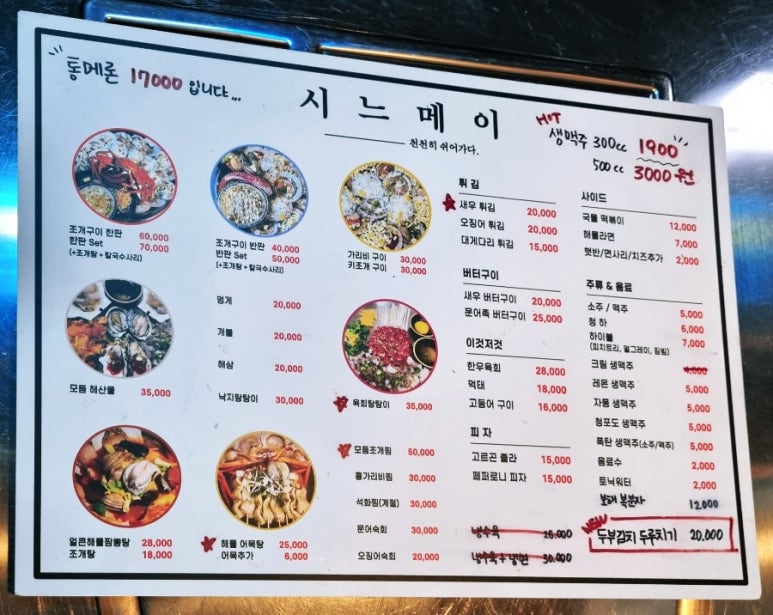 통메론 17000 입니다...
시느메이
천천히 쉬어가다.
HOT
생맥주 300cc 1900
500cc 3000원
조개구이 한판 60,000
한판 Set 70,000
(+조개탕+칼국수사리)
조개구이 반판 40,000
반판 Set 50,000
(+조개탕+칼국수사리)
가리비 구이 30,000
키조개 구이 30,000
모듬 해산물 35,000
멍게 20,000
개불 20,000
해삼 20,000
낙지탕탕이 30,000
육회탕탕이 35,000
얼큰해물짬뽕탕 28,000
조개탕 18,000
해물 어묵탕 25,000
어묵추가 6,000
모둠조개찜 50,000
홍가리비찜 30,000
석화찜(계절) 30,000
문어숙회 30,000
오징어숙회 20,000
튀김
새우 튀김 20,000
오징어 튀김 20,000
대게다리 튀김 15,000
버터구이
새우 버터구이 20,000
문어족 버터구이 25,000
이것저것
한우육회 28,000
먹태 18,000
고등어 구이 16,000
피자
고르곤 졸라 15,000
페퍼로니 피자 15,000
냉수육 25.000
냉수육+냉면 30.000
사이드
국물 떡볶이 12,000
해물라면 7,000
햇반/면사리/치즈추가 2,000
주류 & 음료
소주 / 맥주 5,000
청하 6,000
하이볼 7,000
(피치트리, 얼그레이, 짐빔)
크림 생맥주 4,000
레몬 생맥주 5,000
자몽 생맥주 5,000
청포도 생맥주 5,000
폭탄 생맥주(소주/맥주) 5,000
음료수 2,000
토닉워터 2,000
보해 복분자 12000
NEW
두부김치 두루치기 20.000